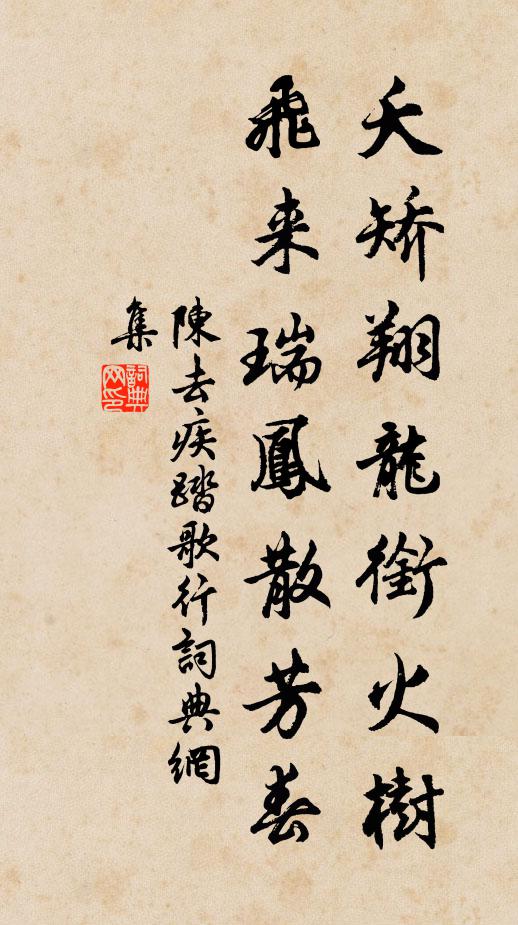 夭矯翔龍銜火樹
飛来瑞鳳散芳春
陳去疾踏歌行詞典網
集
詞典
网印